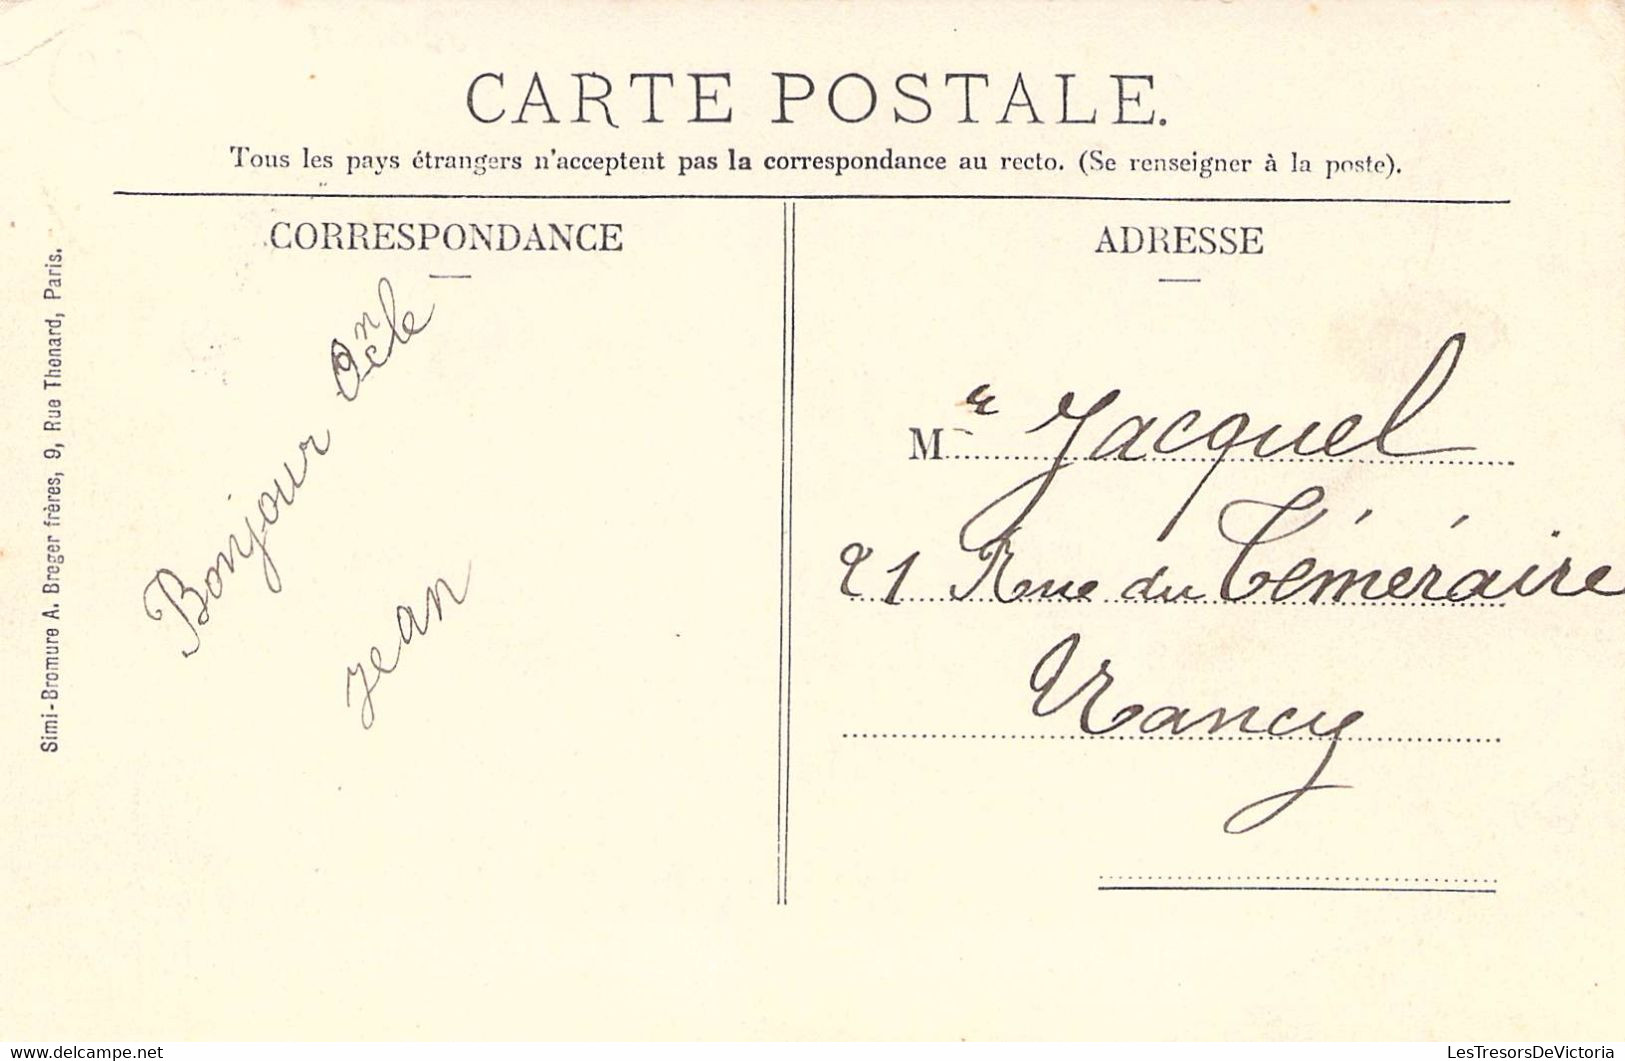 CARTE POSTALE.
Tous les pays étrangers n'acceptent pas la correspondance au recto. (Se renseigner à la poste).
CORRESPONDANCE
Bonjour Oncle
Jean
ADRESSE
Mr Jacquel
21 Rue du Téméraire
Nancy
Simi-Bromure A. Breger frères, 9, Rue Thenard, Paris.
www.delcampe.net
LesTresorsDeVictoria